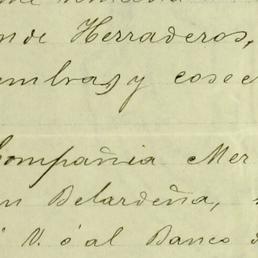 nde Herraderos,
embras, y cosec
Compañia Mer
n Belardeña,
V. ó al Banco